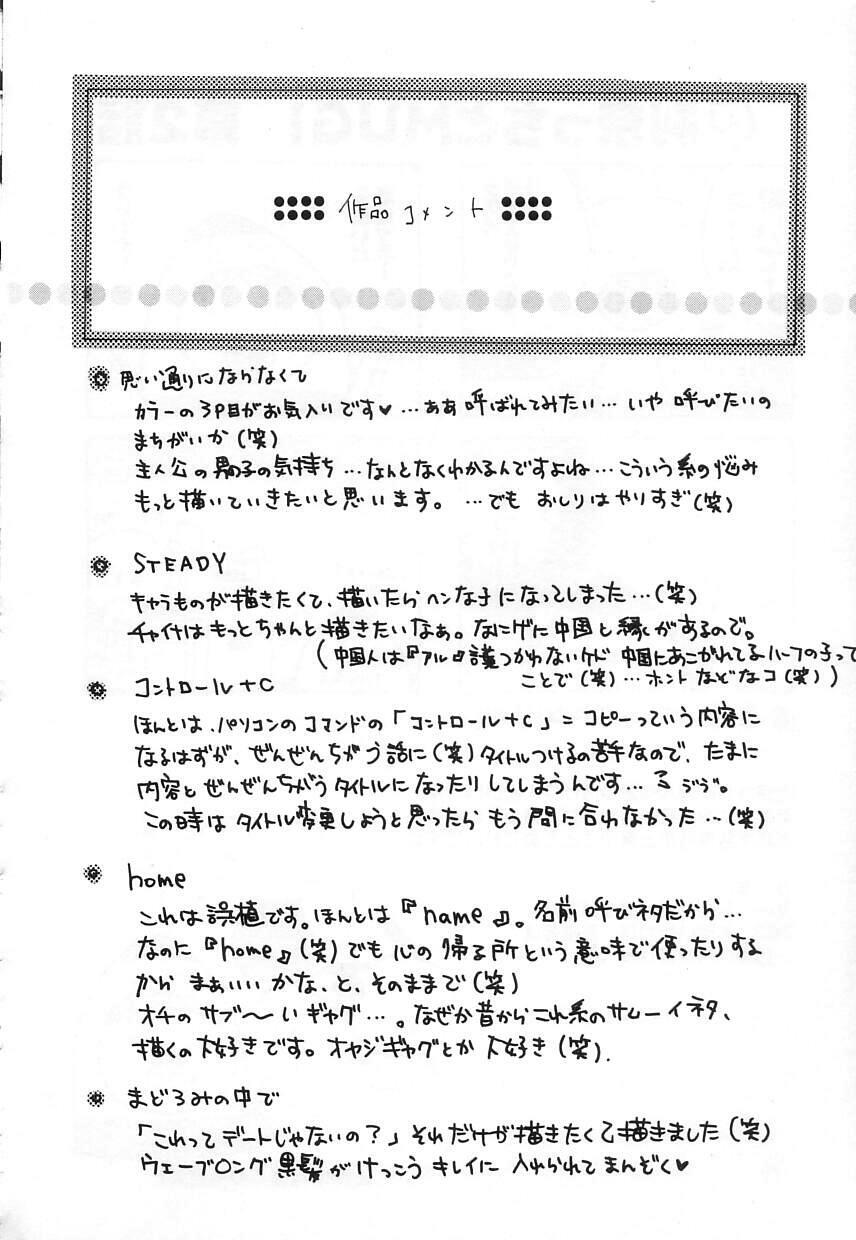 作品コメント
思い通りにならなくて
カラーの3P目がお気入りです♥…ああ 呼ばれてみたい…いや 呼びたいの
まちがいか(笑)
主人公の男の子の気持ち…なんとなくわかるんですよね…こういう系の悩み
もっと描いていきたいと思います。…でも おしりはやりすぎ(笑)
STEADY
キャラものが描きたくて、描いたらヘンな子になってしまった…(笑)
チャイナはもっとちゃんと描きたいなぁ。なにゲに中国と縁があるので。
(中国人は『アル』語つかわないケド 中国にあこがれてるハーフの子って
ことで(笑)…ホントなどなコ(笑))
コントロール+C
ほんとは、パソコンのコマンドの「コントロール+C」=コピーっていう内容に
なるはずが、ぜんぜんちがう話に(笑)タイトルつけるの苦手なので、たまに
内容とぜんぜんちがうタイトルになったりしてしまうんです…
この時はタイトル変更しようと思ったらもう間に合わなかった…(笑)
home
これは誤植です。ほんとは『name』。名前呼びネタだから…
なのに『home』(笑)でも心の帰る所という意味で使ったりする
から まぁいいかな、と、そのままで(笑)
オチの サブ〜い ギャグ…。なぜか昔からこれ系のサムーイネタ、
描くの大好きです。オヤジギャグとか 大好き(笑).
まどろみの中で
「これってデートじゃないの?」それだけが描きたくて描きました(笑)
ウェーブロング黒髪がけっこうキレイに入れられてまんぞく♥